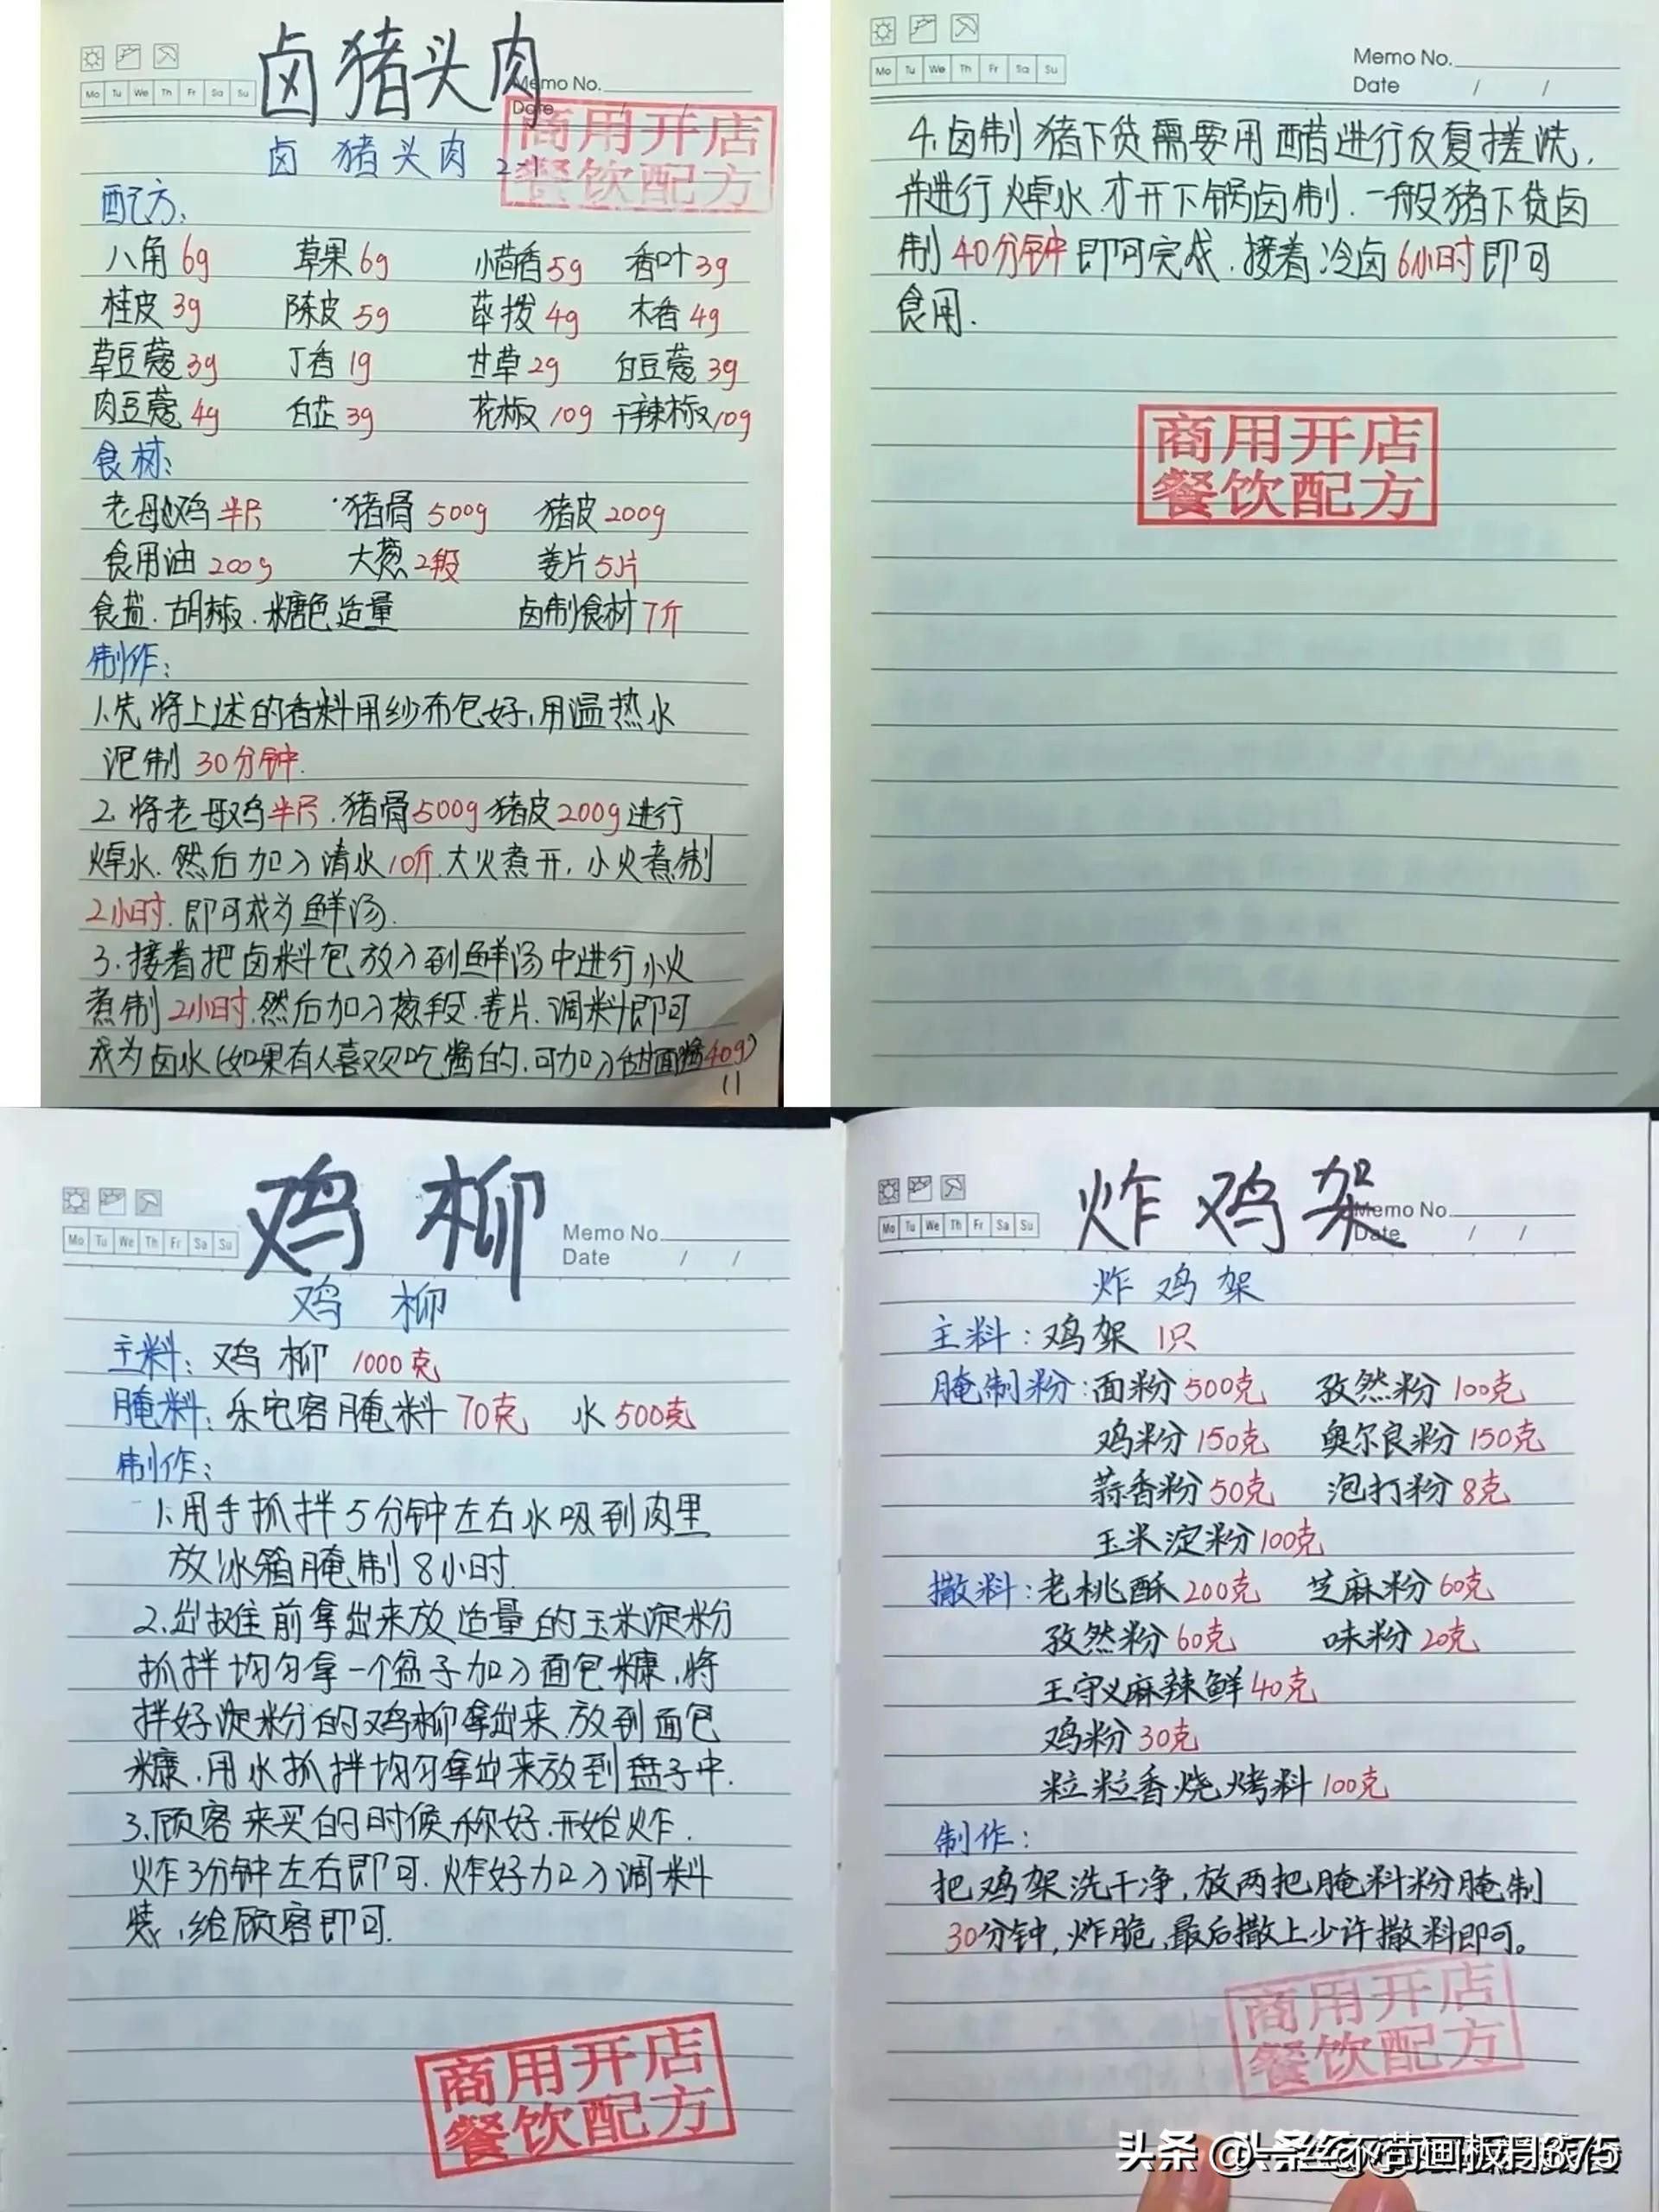 卤猪头肉
Memo No.
Date / /
Mo Tu We Th Fr Sa Su
商用开店
餐饮配方
卤 猪头肉
配方:
八角 6g 草果 6g 小茴香 5g 香叶 3g
桂皮 3g 陈皮 5g 荜拨 4g 木香 4g
草豆蔻 3g 丁香 1g 甘草 2g 白豆蔻 3g
肉豆蔻 4g 白芷 3g 花椒 10g 干辣椒 10g
食材:
老母鸡半只 猪骨 500g 猪皮 200g
食用油 200g 大葱 2段 姜片 5片
食盐.胡椒.糖色适量 卤制食材 7斤
制作:
1.先将上述的香料用纱布包好,用温热水
泡制 30分钟.
2.将老母鸡半只.猪骨500g猪皮200g进行
焯水.然后加入清水10斤.大火煮开,小火煮制
2小时.即可成为鲜汤.
3.接着把卤料包放入到鲜汤中进行小火
煮制2小时.然后加入葱段.姜片.调料即可
成为卤水(如果有人喜欢吃酱的.可加入甜面酱40g)
11
Mo Tu We Th Fr Sa Su
Memo No.
Date / /
4.卤制猪下货需要用醋进行反复搓洗,
并进行焯水.才开下锅卤制.一般猪下货卤
制40分钟即可完成.接着冷卤6小时即可
食用.
商用开店
餐饮配方
鸡柳
Mo Tu We Th Fr Sa Su
Memo No.
Date / /
鸡 柳
主料: 鸡柳 1000克
腌料: 乐宅客腌料 70克 水 500克
制作:
1.用手抓拌5分钟左右水吸到肉里
放冰箱腌制8小时.
2.出摊前拿出来放适量的玉米淀粉
抓拌均匀拿一个盆子加入面包糠.将
拌好淀粉的鸡柳拿出来.放到面包
糠.用水抓拌均匀拿出来放到盘子中.
3.顾客来买的时候称好.开始炸.
炸3分钟左右即可.炸好加入调料
装,给顾客即可.
商用开店
餐饮配方
炸鸡架
Mo Tu We Th Fr Sa Su
Memo No.
Date / /
炸 鸡 架
主料: 鸡架 1只
腌制粉: 面粉 500克 孜然粉 100克
鸡粉 150克 奥尔良粉 150克
蒜香粉 50克 泡打粉 8克
玉米淀粉 100克
撒料: 老桃酥 200克 芝麻粉 60克
孜然粉 60克 味粉 20克
王守义麻辣鲜 40克
鸡粉 30克
粒粒香烧烤料 100克
制作:
把鸡架洗干净,放两把腌料粉腌制
30分钟,炸脆,最后撒上少许撒料即可。
商用开店
餐饮配方
头条